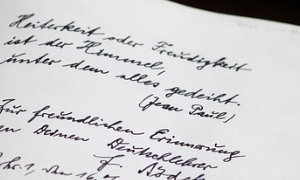 Heiterkeit oder Freudigkeit
ist der Himmel,
unter dem alles gedeiht.
(Jean Paul)
Zur freundlichen Erinnerung
Deinen Deutschlehrer
F.
den 16.